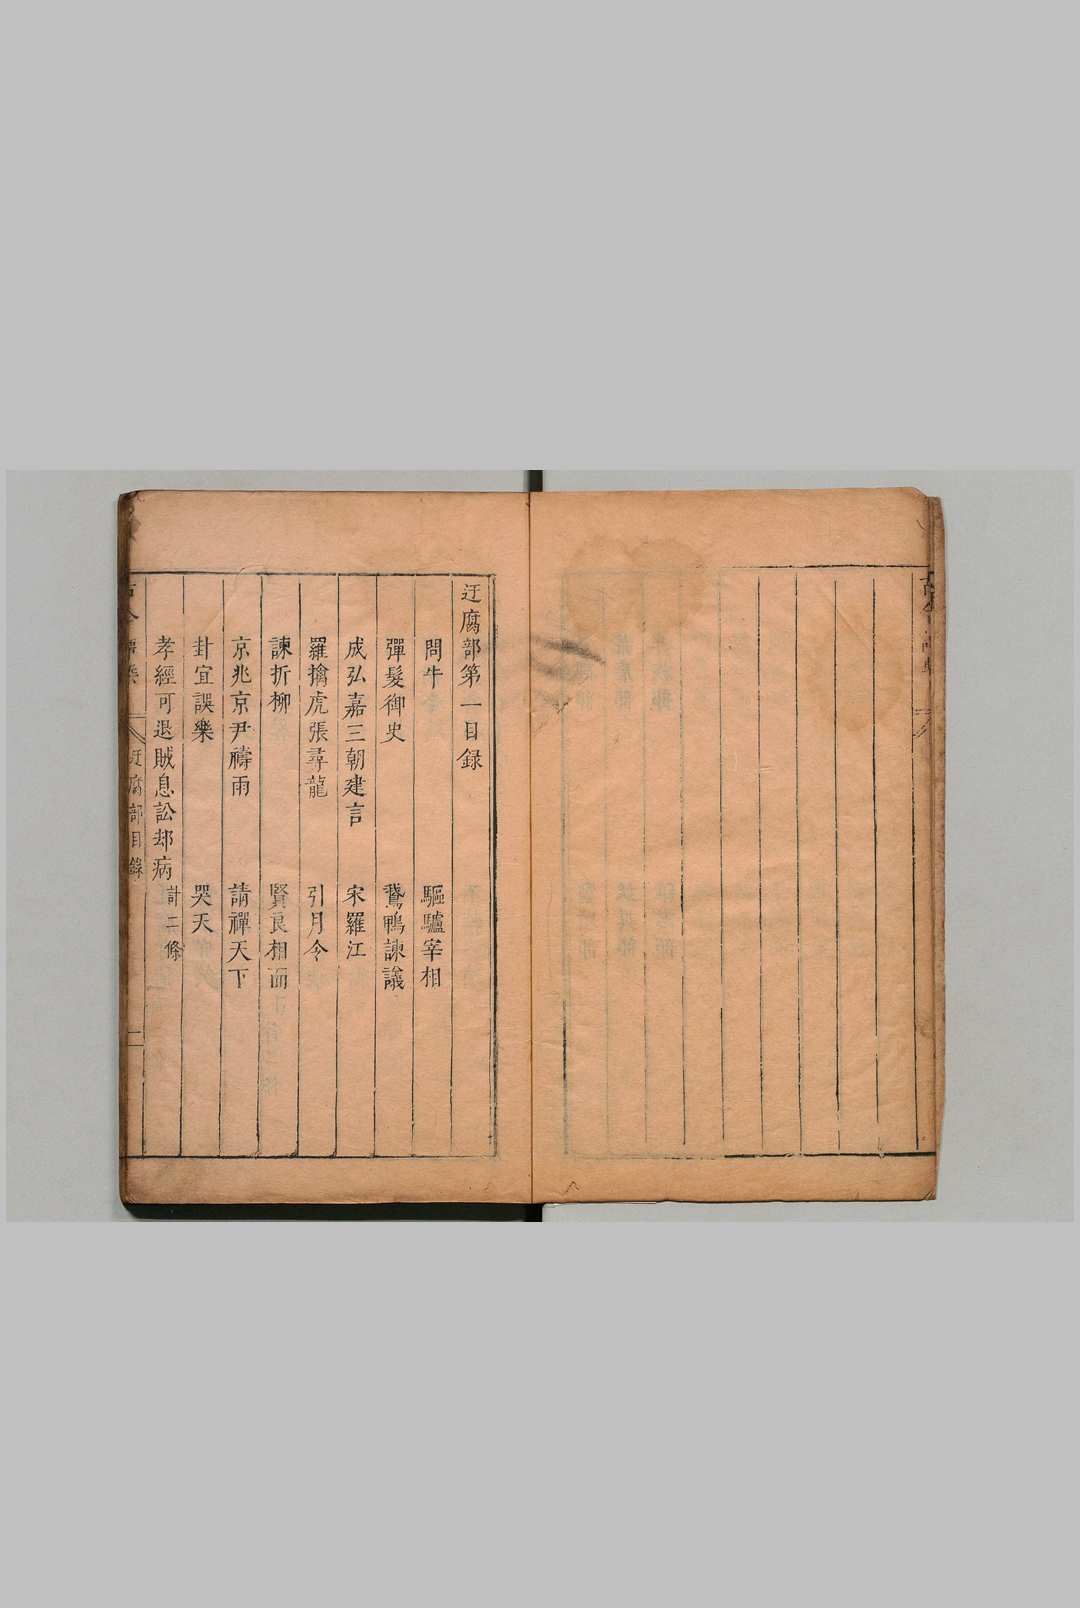 迂腐部第一目録
問牛 驅驢宰相
彈髮御史 鵞鴨諫議
成弘嘉三朝建言 宋羅江
羅擒虎張尋龍 引月令
諫折柳 賢良相面
京兆京尹禱雨 請禪天下
封宜誤樂 哭天
孝經可退賊息訟却病計二條
迂腐部目錄